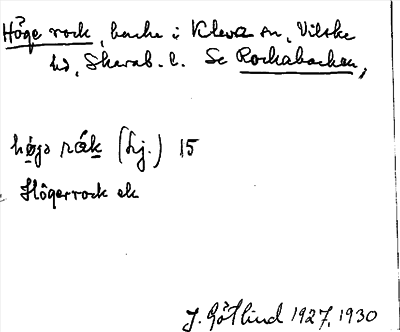 Höge rock, backe i Kleva sn, Vilske
hd, Skarab. l. Se Rockabacken,
høgə råk (Lj.) 15
Högerrock ek
J. Götlind 1927, 1930